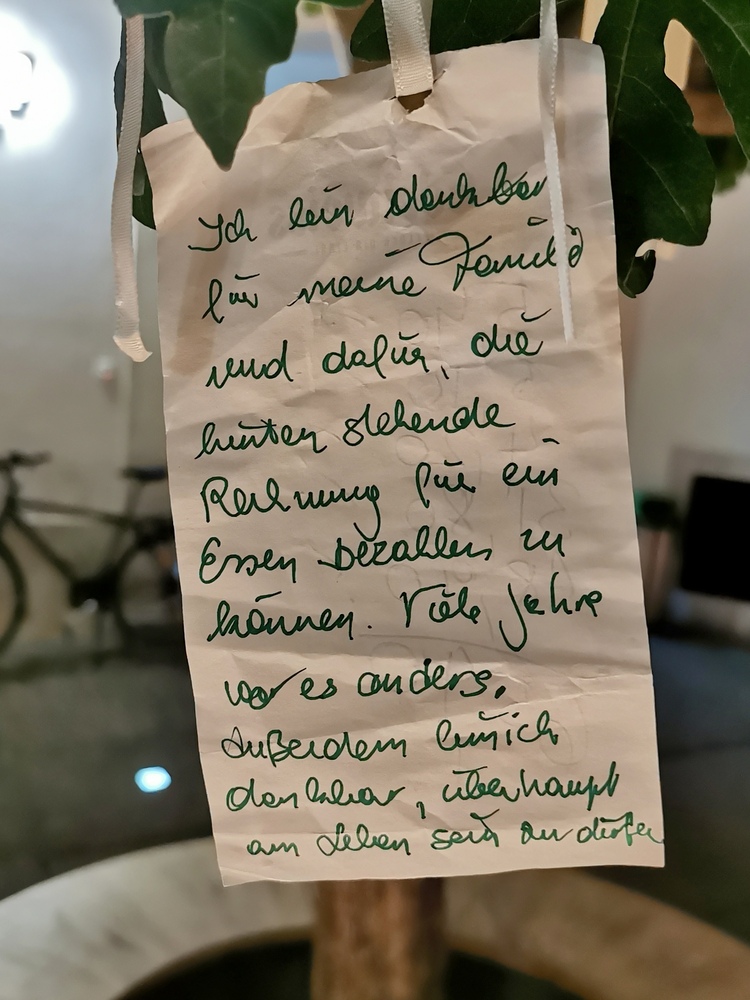 Ich bin dankbar
für meine Familie
und dafür, die
hinten stehende
Rechnung für ein
Essen bezahlen zu
können. Viele Jahre
war es anders.
Außerdem bin ich
dankbar, überhaupt
am Leben sein zu dürfen